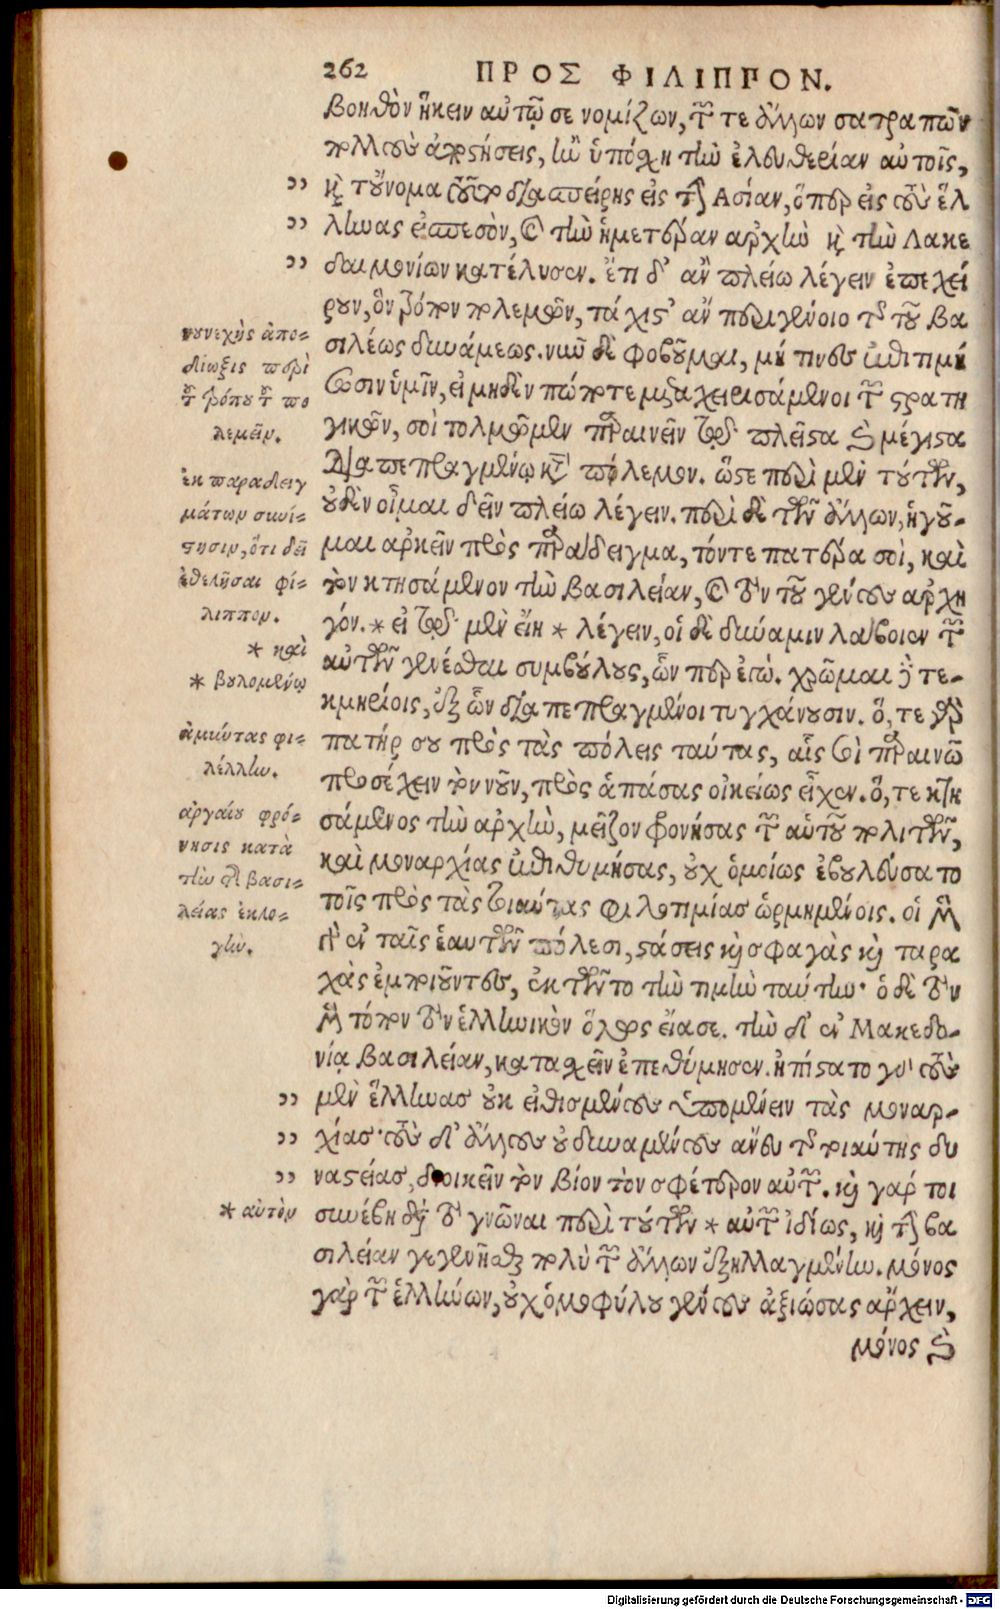 262 ΠΡΟΣ ΦΙΛΙΠΠΟΝ.
βοηθὸν ἥκειν αὐτῷ σε νομίζων, τῶν τε ἄλλων σατραπῶν
πολλοὺς ἀποστήσεις, ἢν ὑπόσχῃ τὴν ἐλευθερίαν αὐτοῖς,
,, καὶ τοὔνομα τοῦτο διασπείρῃς εἰς τὴν Ἀσίαν, ὅπερ εἰς τοὺς ἕλ
,, ληνας εἰσπεσὸν, καὶ τὴν ἡμετέραν ἀρχὴν καὶ τὴν Λακε
,, δαιμονίων κατέλυσεν. ἔτι δ' ἂν πλείω λέγειν ἐπεχεί
ρουν, ὃν τρόπον πολεμῶν, τάχιστ' ἂν περιγένοιο τῆς τοῦ βα
σιλέως δυνάμεως. νῦν δὲ φοβοῦμαι, μή τινες ἐπιτιμή
σωσιν ὑμῖν, εἰ μηδὲν πώποτε μεταχειρισάμενοι τῶν στρατη
γικῶν, σοὶ τολμῶμεν παραινεῖν τῷ πλεῖστα καὶ μέγιστα
διαπεπραγμένῳ κατὰ πόλεμον. ὥστε περὶ μὲν τούτων,
οὐδὲν οἶμαι δεῖν πλείω λέγειν. περὶ δὲ τῶν ἄλλων, ἡγοῦ-
μαι ἀρκεῖν πρὸς παράδειγμα, τόντε πατέρα σοὶ, καὶ
τὸν κτησάμενον τὴν βασιλείαν, καὶ τὸν τοῦ γένους ἀρχη
γόν. * εἰ τῷ μὲν εἴη * λέγειν, οἱ δὲ δύναμιν λάβοιεν τῶν
αὐτῶν γενέσθαι συμβούλους, ὧν περ ἐγώ. χρῶμαι δὲ τε-
κμηρίοις, ἐξ ὧν διαπεπραγμένοι τυγχάνουσιν. ὅ, τε γὰρ
πατήρ σου πρὸς τὰς πόλεις ταύτας, αἷς σοὶ παραινῶ
προσέχειν τὸν νοῦν, πρὸς ἁπάσας οἰκείως εἶχεν. ὅ, τε κτη
σάμενος τὴν ἀρχὴν, μεῖζον φρονήσας τῶν αὑτοῦ πολιτῶν,
καὶ μοναρχίας ἐπιθυμήσας, οὐχ ὁμοίως ἐβουλεύσατο
τοῖς πρὸς τὰς τοιαύτας φιλοτιμίας ὡρμημένοις. οἱ μὲν
γὰρ ἐν ταῖς ἑαυτῶν πόλεσι, στάσεις καὶ σφαγὰς καὶ ταρα
χὰς ἐμποιοῦντες, ἐκτῶντο τὴν τιμὴν ταύτην· ὁ δὲ τὸν
μὲν τόπον τὸν ἑλληνικὸν ὅλως εἴασε. τὴν δ' ἐν Μακεδο-
νίᾳ βασιλείαν, κατασχεῖν ἐπεθύμησεν. ἠπίστατο γὰρ τοὺς
,, μὲν ἕλληνας οὐκ εἰθισμένους ὑπομένειν τὰς μοναρ-
,, χίας· τοὺς δ' ἄλλους οὐ δυναμένους ἄνευ τῆς τοιαύτης δυ
,, ναστείας, διοικεῖν τὸν βίον τὸν σφέτερον αὐτῶν. καὶ γάρ τοι
συνέβη διὰ τὸ γνῶναι περὶ τούτων * αὐτῶν ἰδίως, καὶ τὴν βα
σιλείαν γεγενῆσθαι πολὺ τῶν ἄλλων ἐξηλλαγμένην. μόνος
γὰρ τῶν ἑλλήνων, οὐχ ὁμοφύλου γένους ἀξιώσας ἄρχειν,
μόνος καὶ
νουνεχὴς ἀπο-
δίωξις περὶ
τοῦ τρόπου τοῦ πο
λεμεῖν.
ἐκ παραδειγ
μάτων συνί-
στησιν, ὅτι δεῖ
ἐθελῆσαι φί-
λιππον.
* καὶ
* βουλομένῳ
ἀμύντας φι-
λέλλην.
ἀργαίου φρό-
νησις κατὰ
τὴν τῆς βασι-
λείας ἐκλο-
γὴν.
* αὐτὸν
Digitalisierung gefördert durch die Deutsche Forschungsgemeinschaft - DFG